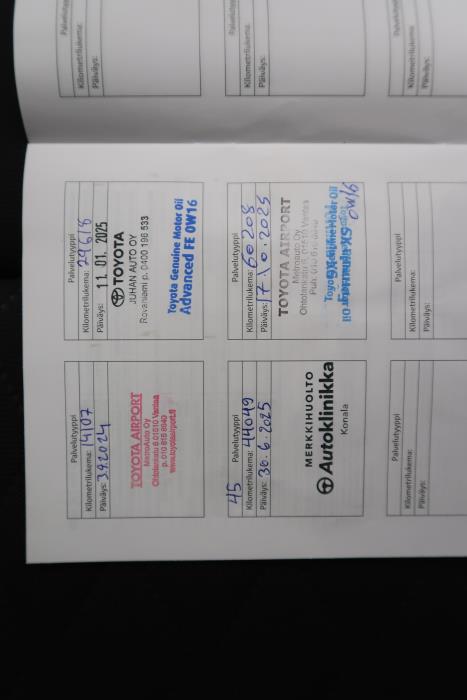 Palvelutyyppi
Kilometrilukema: 14107
Päiväys: 3.9.2024
TOYOTA AIRPORT
MetroAuto Oy
Ohtolankatu 6 01510 Vantaa
p. 010 615 8840
www.toyotaairport.fi
Palvelutyyppi
Kilometrilukema: 29618
Päiväys: 11.01.2025
TOYOTA
JUHAN AUTO OY
Rovaniemi p. 0400 196 533
Toyota Genuine Motor Oil
Advanced FE 0W16
Kilometrilukema:
Päiväys:
45 Palvelutyyppi
Kilometrilukema: 44049
Päiväys: 30.6.2025
MERKKIHUOLTO
Autoklinikka
Konala
Palvelutyyppi
Kilometrilukema: 60208
Päiväys: 17.10.2025
TOYOTA AIRPORT
Metroauto Oy
Ohtolankatu 6, 01510 Vantaa
0W16
Kilometrilukema:
Päiväys:
Palvelutyyppi
Kilometrilukema:
Päiväys:
Palvelutyyppi
Kilometrilukema:
Päiväys:
Kilometrilukema:
Päiväys: